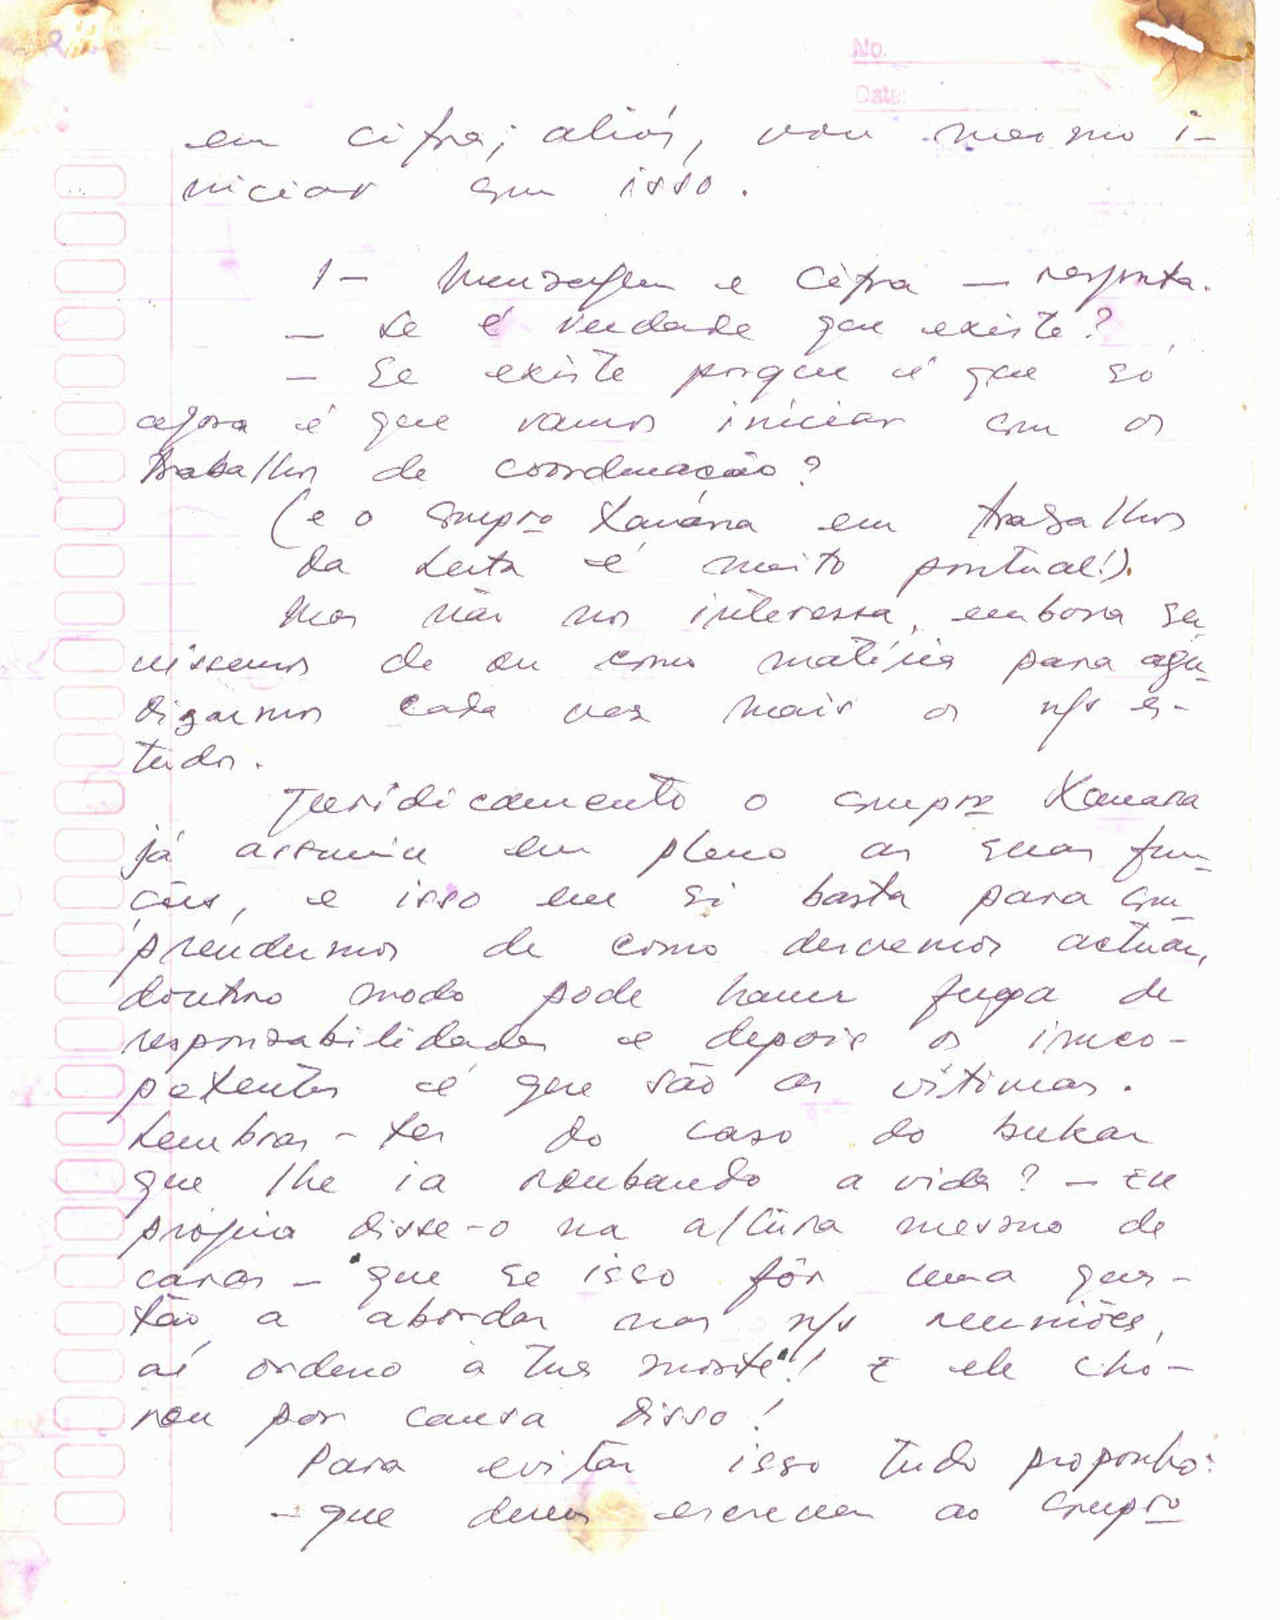 No.
Date:
em cifra; aliás, vou mesmo i-
niciar com isso.
1 - Mensagem e Cifra — resposta.
— Se é verdade que existe?
— Se existe porque é que só
agora é que vamos iniciar com os
trabalhos de coordenação?
(e o Cmpro Xanana em trabalhos
da luta é muito pontual!).
Mas não nos interessa, embora se
vissemos de ou como matéria para agu-
dizarmos cada vez mais os n/s es-
tudos.
Juridicamente o Cmpro Xanana
já assumiu em pleno as suas fun-
ções, e isso em si basta para com-
prendermos de como devemos actuar,
doutro modo pode haver fuga de
responsabilidades e depois os inco-
petentes é que são as vítimas.
Lembras-tes do caso do
que lhe ia roubando a vida? — Eu
própria disse-o na altura mesmo de
caras — "que se isso fôr uma ques-
tão a abordar nas n/s reuniões,
aí ordeno a tua morte"! E ele cho-
rou por causa disso!
Para evitar isso tudo proponho:
- que deves escrever ao Cmpro